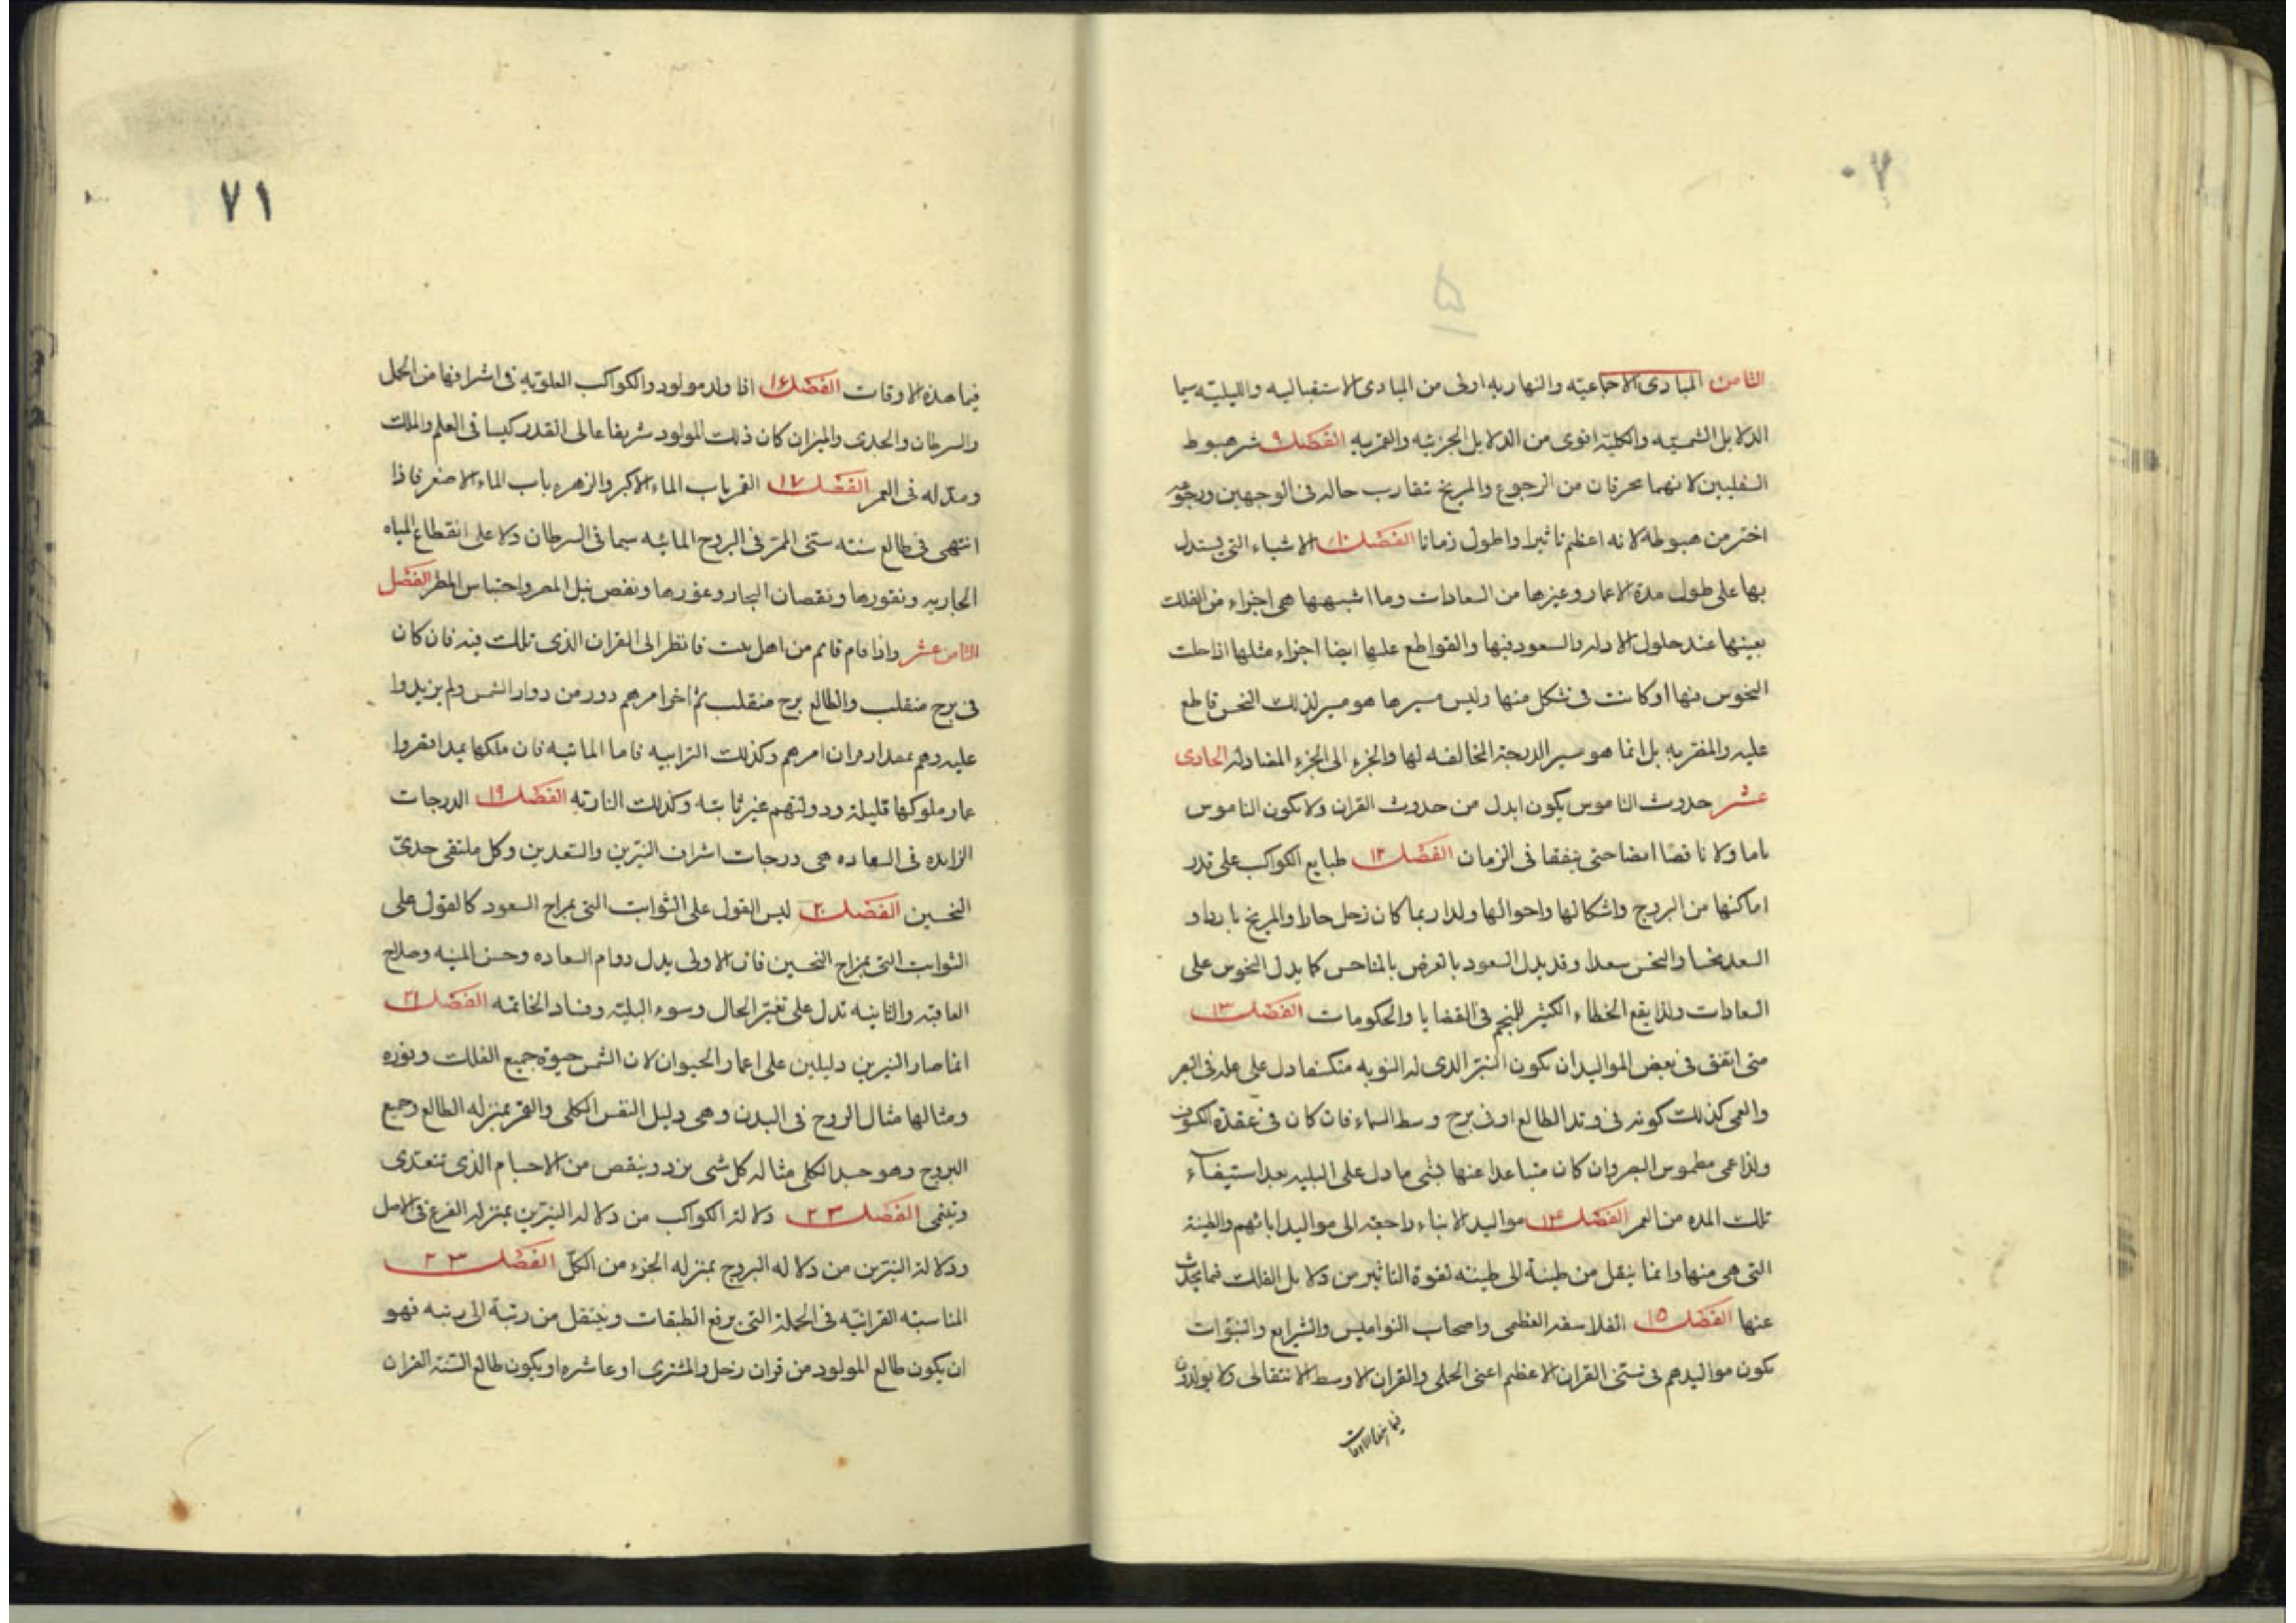 ٧٠
۵
الثامن المبادى الاجتماعيه والنهاريه اولى من المبادى الاستقباليه والليليته سيما
الدلايل الشمسيه والكليه اقوى من الدلايل الجزئيه والقمريه الفصل ٩ شر هبوط
السفليين لانهما يحرقان من الرجوع والمريخ تقارب حاله فى الوجهين ورجوعه
اختر من هبوطه لانه اعظم تاثيرا واطول زمانا الفصل ١٠ الاشياء التى يستدل
بها على طول مدة الاعمار وغيرها من السعادات وما اشبهها هى اجزاء من الفلك
بعينها عند حلول الادله والسعود فيها والقواطع عليها ايضا اجزاء مثلها اذا حلت
النحوس فيها او كانت فى شكل منها وليس مسيرها هو مسير لذلك النحس قاطع
عليه والمقربه بل انما هو سير الدرجة المخالفه لها والجزء الى الجزء المضاد له الحادى
عشر حدوث الناموس يكون ابدل من حدوث القران ولا يكون الناموس
تاما ولا ناقصا ايضا حتى يتفقا فى الزمان الفصل ١٢ طبايع الكواكب على قدر
اماكنها من البروج واشكالها واحوالها ولذا ربما كان زحل حارا والمريخ باردا و
السعد نحسا والنحس سعدا وقد يدل السعود بالعرض بالمناحس كما يدل النحوس على
السعادات ولذا يقع الخطاء الكثير للمنجم فى القضايا والحكومات الفصل ١٣
متى اتفق فى بعض المواليد ان يكون النير الذى له النوبه منكسفا دل على عله فى البصر
والعمى كذلك كونه فى وتد الطالع او فى برج وسط السماء فان كان فى عقدة الكسوف
ولذا عمى مطموس البصر وان كان متباعدا عنها بشى ما دل على البليه بعد استيفاء
تلك المده من العمر الفصل ١٤ مواليد الابناء راجعة الى مواليد ابائهم والطينة
التى هى منها وانما ينقل من طينة الى طينته لقوة التاثير من دلايل الفلك فما يحدث
عنها الفصل ١٥ الفلاسفه العظمى واصحاب النواميس والشرايع والنبوات
يكون مواليدهم فى سنتى القران الاعظم اعنى الحملى والقران الاوسط الانتقالى ولا يولدون
فيما
٧١
فيما هذه الاوقات الفصل ١٤ اذا ولد مولود والكواكب العلويه فى اشرافها من الحمل
والسرطان والجدى والميزان كان ذلك المولود شريفا عالى القدر كيسا فى العلم والملك
ومد له فى العمر الفصل ١٧ القمر باب الماء الاكبر والزهره باب الماء الاصغر فاذا
انتهى فى طالع سنه ستى الممر فى البروج المائيه سيما فى السرطان دلا على انقطاع المياه
الجاريه ونقورها ونقصان البحار وغورها ونقص نيل المصر واحتباس المطر الفصل
الثامن عشر واذا قام قايم من اهل بيت فانظر الى القران الذى تلك فيه فان كان
فى برج منقلب والطالع برج منقلب تم اخر امرهم دور من دوار الشمس ولم يزيدوا
عليه وهم بمقدار امرهم وكذلك الترابيه فاما المائيه فان ملكها يمدا
عمار ملوكها قليلة ودولتهم غير ثابته وكذلك الناريه الفصل ١٩ الدرجات
الزايده فى السعاده هى درجات اشراف النيرين والسعدين وكل ملتقى حدى
النحسين الفصل ٢٠ ليس القول على الثوابت التى بمزاج السعود كالقول على
الثوابت التى بمزاج النحسين فان الاولى يدل دوام السعاده وحسن الميته وصلاح
العاقبه والثانيه تدل على تغير الحال وسوء البليه وفساد الخاتمه الفصل ٢١
انما صار النيرين دليلين على اعمار الحيوان لان الشمس حيوة جميع الفلك ونوره
ومثالها مثال الروح فى البدن وهى دليل النفس الكلى والقمر بمنزله الطالع وجميع
البروج وهو جسد الكلى مثاله كل شى يزد وينقص من الاجسام الذى تتغدى
وتنمى الفصل ٢٣ دلالة الكواكب من دلاله النيرين بمنزله الفرع فى الاصل
ودلالة النيرين من دلاله البروج بمنزله الجزء من الكل الفصل ٢٣
المناسبته القرانيه فى الجملة التى يرفع الطبقات وينتقل من رتبة الى رتبه فهو
ان يكون طالع المولود من قران زحل والمشترى او عاشره او يكون طالع السنة القران